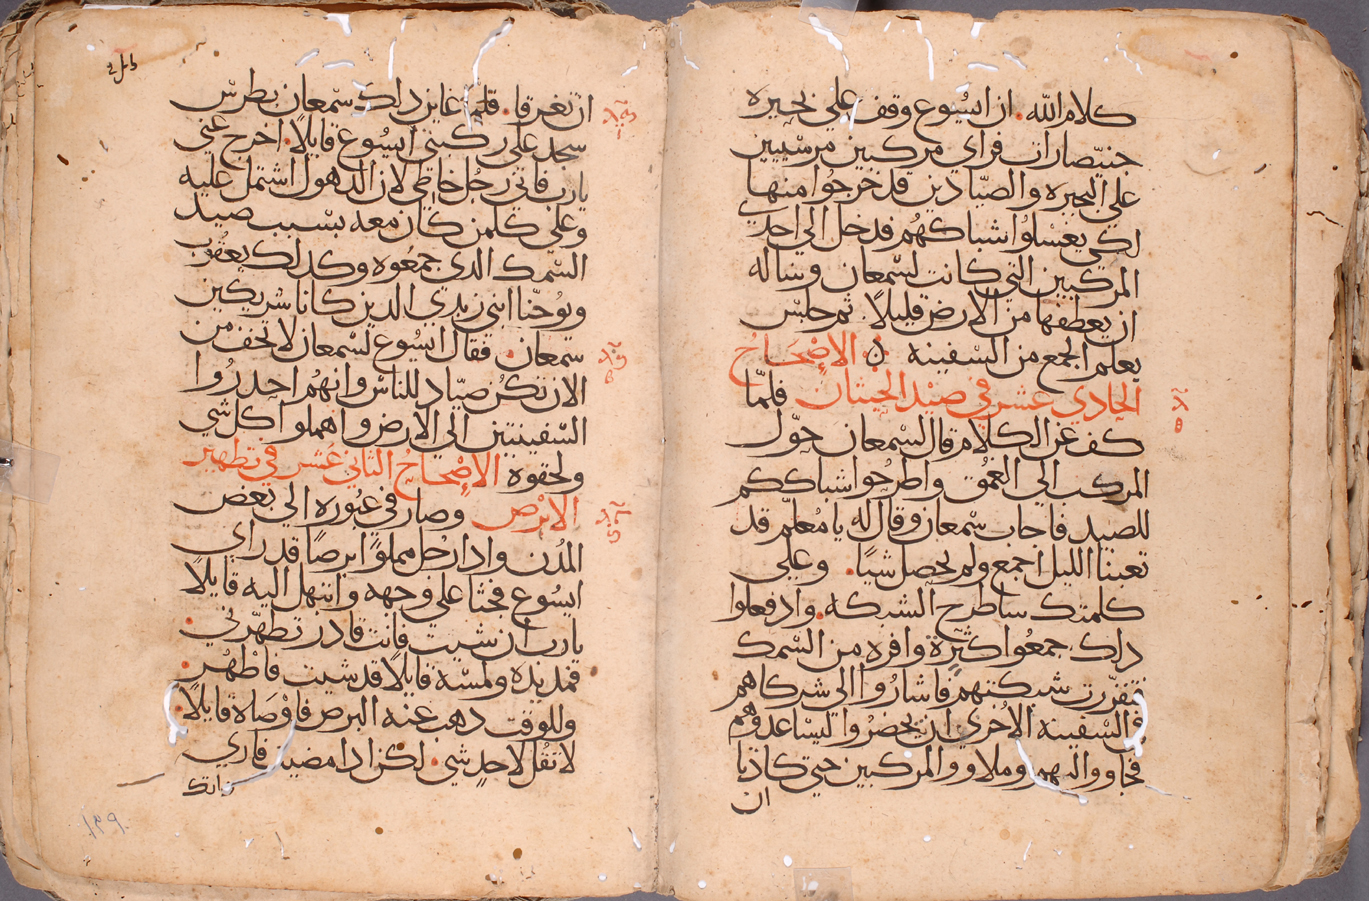 كلام الله. ان ايسُوع وقف علي بحيره
جنيّصارات فراي مركبين مرسيين
علي البحيره والصيّادين قد خرجُوا منها
لكي يغسلوُا اشباكهُم فدخل الي احدي
المركبين التي كانت لسْمعان وساله
ان يعطفها من الارض قليلاً. ثم جلسْ
يعلم الجمع من السْفينه ۞ الاصْحَاحْ
الحادي عشر في صيْد الحيْتان فلمّا
كف عن الكلام قال لسْمعان حوّل
المركب الي العمُق واطرحُوا شباككم
للصيد فاجاب سْمعان وقال له يا مُعلم قد
تعبنا الليل اجمع ولم يحصل شيًا. وعلي
كلمتك ساطرح الشبكه. واذ فعلوا
ذلك جمعُوا كثيرةً وافره من السْمك
فتفزّرت شبكتهم فاشارُوا الي شركاهم
في السْفينه الاُخري ان يحضرُوا ليسْاعدوُهم
فجاووا اليهم وملاوو المركبين حتي كاذتا
ان
ان تغرقا. فلمّا عاين ذلك سْمعان بطرسْ
سجد علي ركبتي ايسُوع قايلاً. اخرج عني
يارب فاني رجُل خاطي لان الدهول اشتمل عليه
وعلي كلمن كان معه بسْبب صيد
السْمك الذي جمعُوه وكذلك يعقوُب
ويوُحنّا ابني زبدي الذين كانا شريكين
سمعان. فقال ايسُوع لسْمعان لا تخف من
الان تكُن صيّاد للناسْ وانهُم احدرُوا
السْفينيتين الي الارض واهملوا كل شي
ولحقوه الاصْحاحُ الثاني عَشر في تطهير
الابرْص وصار في عبُوره الي بعض
المدُن واذا رجُل مملوًا برصًا قد راي
ايسُوع فجثا علي وجهه وابتهل اليه قايلاً
يارب ان شيت فانت قادر تطهّرني.
فمد يده ولمسْه قايلاً قد شيت فاطْهُر.
وللوقت ذهب عنه البرص فاوْصَاه قايلاً.
لا تقُل لاحدٍ شي. لكن اذا مضيت فاري
ذاتك